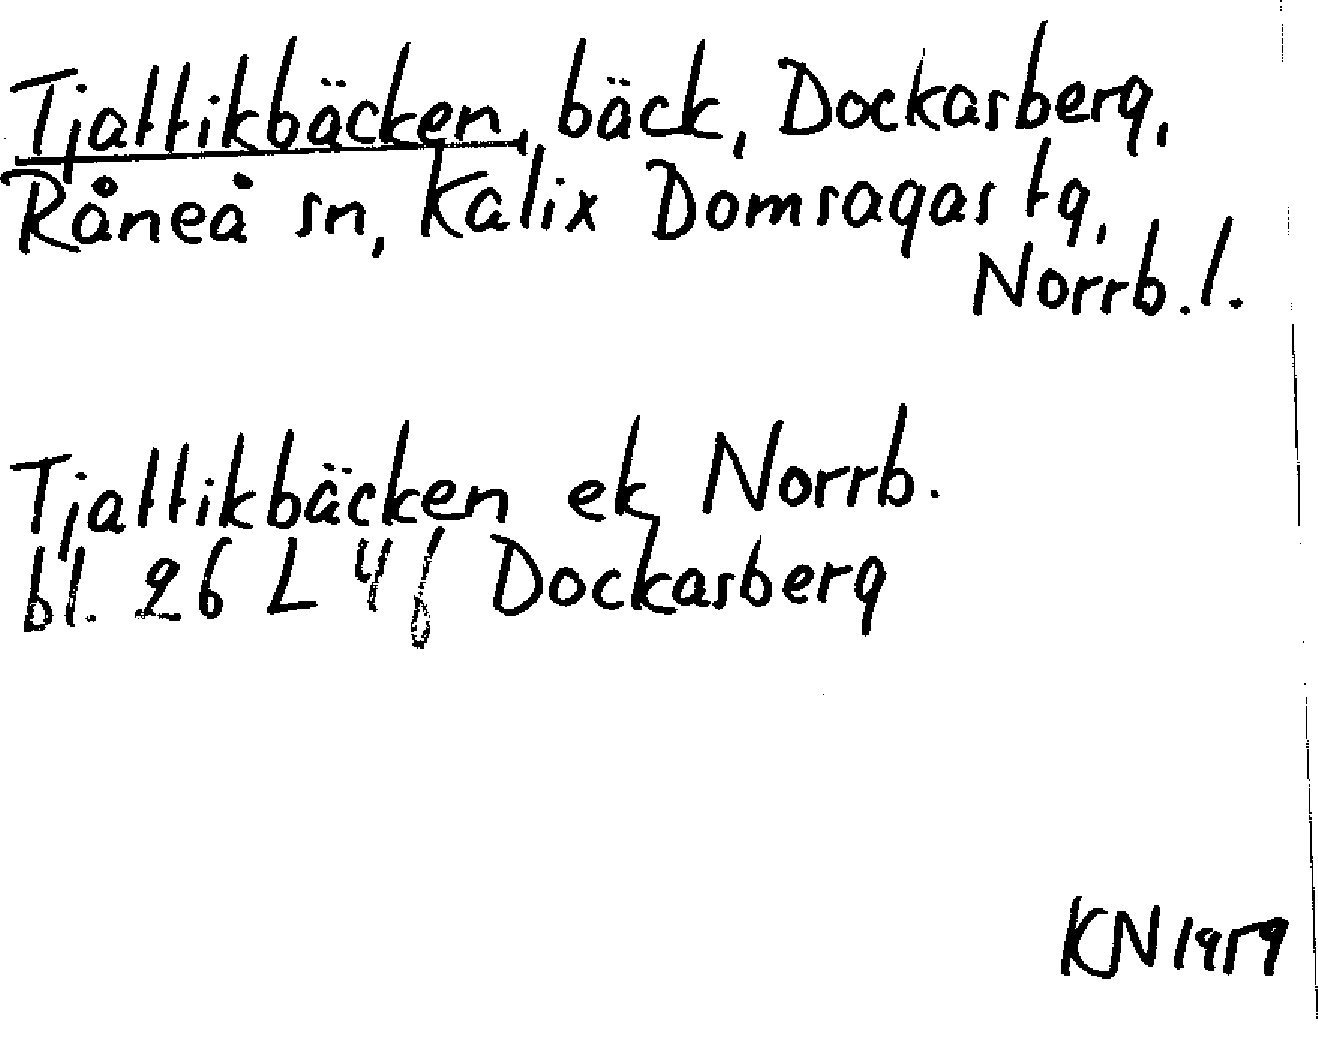 Tjattikbäcken, bäck, Dockasberg,
Råneå sn, Kalix Domsagas tg,
Norrb. l.
Tjattikbäcken ek Norrb.
bl. 26 L 4f Dockasberg
KN 1959